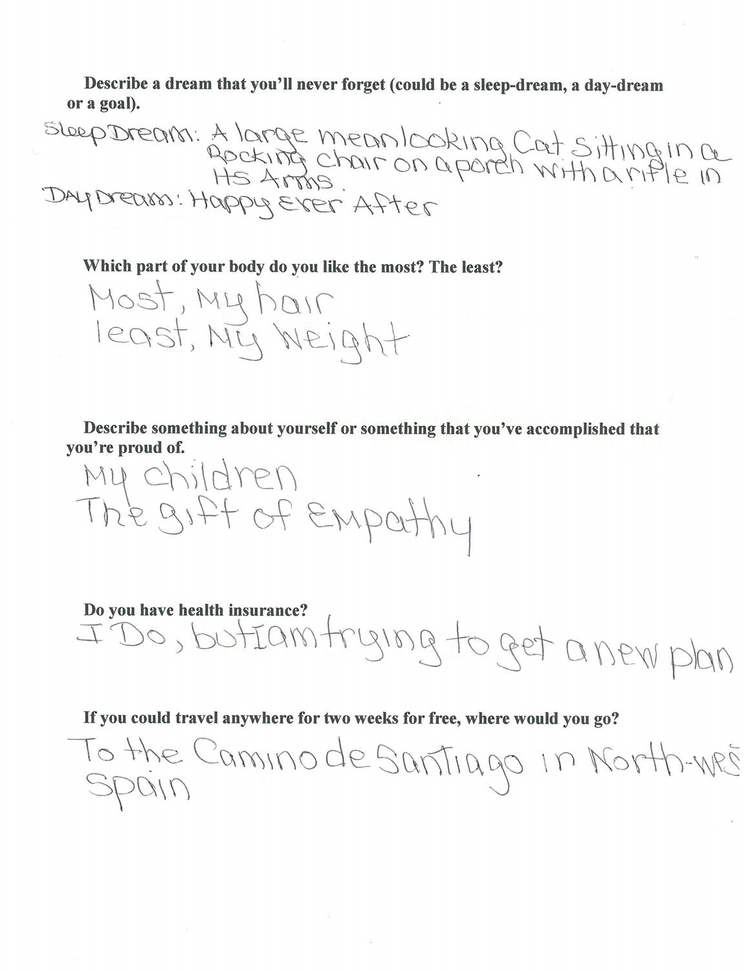 Describe a dream that you'll never forget (could be a sleep-dream, a day-dream
or a goal).
Sleep Dream: A large mean looking Cat Sitting in a
Rocking Chair on a porch with a rifle in
its Arms.
Day Dream: Happy Ever After
Which part of your body do you like the most? The least?
Most, My hair
least, My Weight
Describe something about yourself or something that you've accomplished that
you're proud of.
My Children
The gift of Empathy
Do you have health insurance?
I Do, but I am trying to get a new plan
If you could travel anywhere for two weeks for free, where would you go?
To the Camino de Santiago in North-wes
Spain